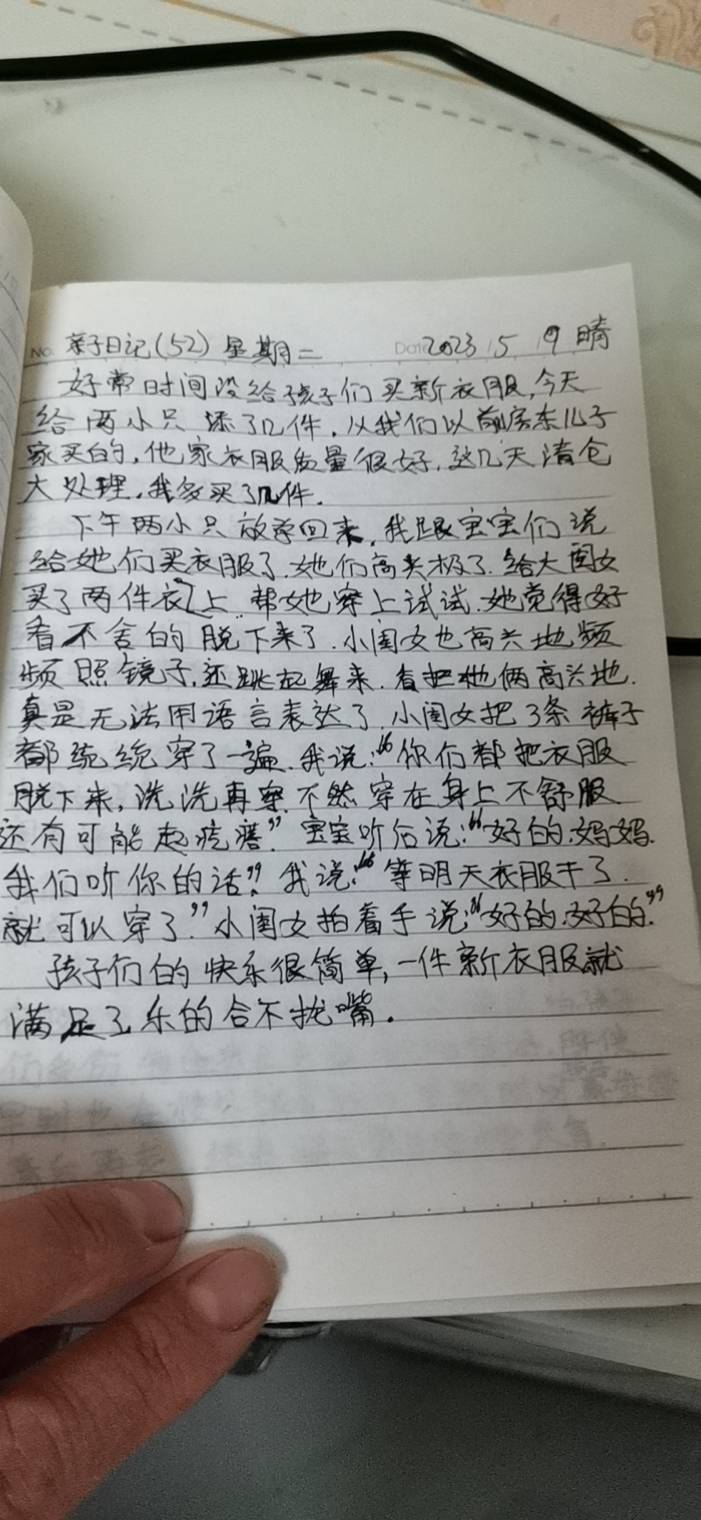 No. 亲子日记(52) 星期二 Date 2023 5 9 晴
好常时间没给孩子们买新衣服,今天
给两小只添了几件,从我们以前房东儿子
家买的,他家衣服质量很好,这几天清仓
大处理,我多买了几件.
下午两小只放学回来,我跟宝宝们说
给她们买衣服了.她们高兴极了.给大闺女
买了两件衣上 帮她穿上试试.她觉得好
看不舍的脱下来了.小闺女也高兴地频
频照镜子,还跳起舞来.看把她俩高兴地.
真是无法用语言表达了.小闺女把3条裤子
都统统穿了一遍.我说:“你们都把衣服
脱下来,洗洗再穿.不然穿在身上不舒服
还有可能起疙瘩”.宝宝听后说:“好的.妈妈.
我们听你的话”.我说:“等明天衣服干了.
就可以穿了.”小闺女拍着手说:“好的.好的.”
孩子们的快乐很简单,一件新衣服就
满足了乐的合不拢嘴.